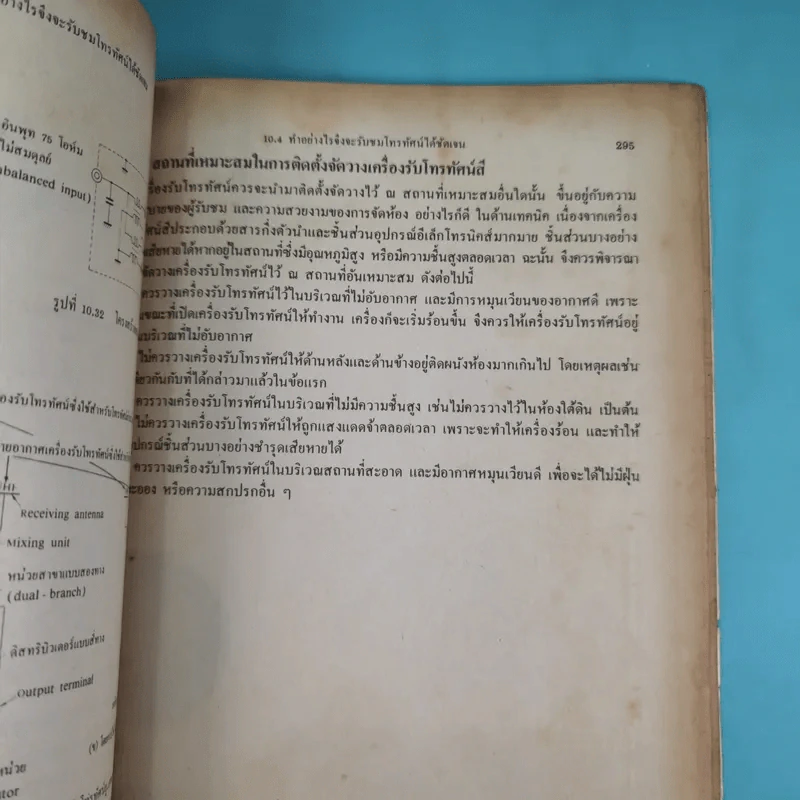 อย่างไรจึงจะรับชมโทรทัศน์ได้ชัดเจน
อินพุท 75 โอห์ม
ไม่สมดุลย์
balanced input)
รูปที่ 10.32
องรับโทรทัศน์ซึ่งใช้สำหรับ
ายอากาศเครื่องรับโทรทัศน์ซึ่งใช้
Receiving antenna
Mixing unit
หน่วยสาขาแบบสองทาง
(dual - branch)
ดิสทริบิวเตอร์แบบสี่ทาง
Output terminal
(ข)
หน่วย
tor
10.4 ทำอย่างไรจึงจะรับชมโทรทัศน์ได้ชัดเจน 295
สถานที่เหมาะสมในการติดตั้งจัดวางเครื่องรับโทรทัศน์สี
รื่องรับโทรทัศน์ควรจะนำมาติดตั้งจัดวางไว้ ณ สถานที่เหมาะสมอื่นใดนั้น ขึ้นอยู่กับความ
ายของผู้รับชม และความสวยงามของการจัดห้อง อย่างไรก็ดี ในด้านเทคนิค เนื่องจากเครื่อง
ทัศน์สีประกอบด้วยสารกึ่งตัวนำและชิ้นส่วนอุปกรณ์อีเล็กโทรนิคส์มากมาย ชิ้นส่วนบางอย่าง
เสียหายได้หากอยู่ในสถานที่ซึ่งมีอุณหภูมิสูง หรือมีความชื้นสูงตลอดเวลา ฉะนั้น จึงควรพิจารณา
จัดวางเครื่องรับโทรทัศน์ไว้ ณ สถานที่อันเหมาะสม ดังต่อไปนี้
ควรวางเครื่องรับโทรทัศน์ไว้ในบริเวณที่ไม่อับอากาศ และมีการหมุนเวียนของอากาศดี เพราะ
ขณะที่เปิดเครื่องรับโทรทัศน์ให้ทำงาน เครื่องก็จะเริ่มร้อนขึ้น จึงควรให้เครื่องรับโทรทัศน์อยู่
บริเวณที่ไม่อับอากาศ
ไม่ควรวางเครื่องรับโทรทัศน์ให้ด้านหลังและด้านข้างอยู่ติดผนังห้องมากเกินไป โดยเหตุผลเช่น
ียวกันกับที่ได้กล่าวมาแล้วในข้อแรก
ควรวางเครื่องรับโทรทัศน์ในบริเวณที่ไม่มีความชื้นสูง เช่นไม่ควรวางไว้ในห้องใต้ดิน เป็นต้น
ไม่ควรวางเครื่องรับโทรทัศน์ให้ถูกแสงแดดจ้าตลอดเวลา เพราะจะทำให้เครื่องร้อน และทำให้
ปกรณ์ชิ้นส่วนบางอย่างชำรุดเสียหายได้
ควรวางเครื่องรับโทรทัศน์ในบริเวณสถานที่สะอาด และมีอากาศหมุนเวียนดี เพื่อจะได้ไม่มีฝุ่น
ะออง หรือความสกปรกอื่น ๆ